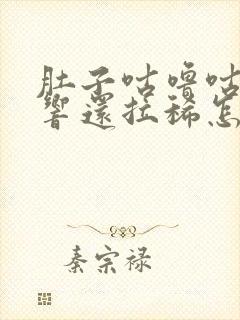 肚子咕噜咕
響還拉稀怎
秦宗禄